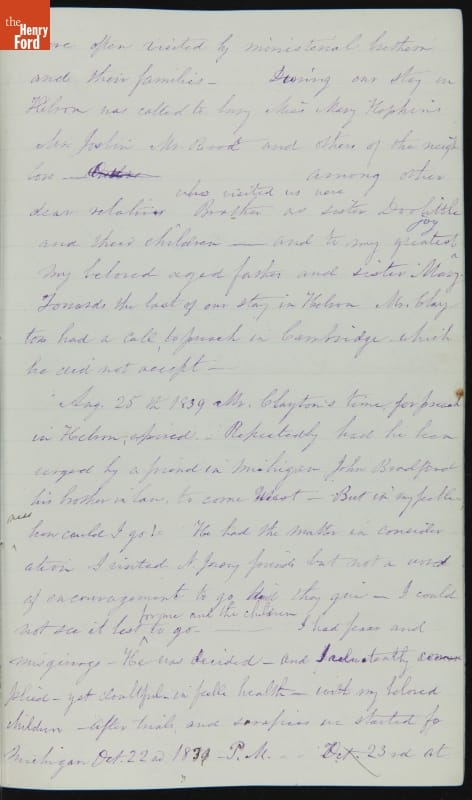 the
Henry
Ford
were often visited by ministerial brethren
and their families — During our stay in
Nelson was called to bury Miss Mary Hopkins
Mrs Joslin Mr. Brood and others of the neigh
bors — among other
who visited us were
dear relatives Brother as sister Doolittle
joy
and their children — and to my greatest
my beloved aged father and sister Mary.
Towards the last of our stay in Nelson Mr. Clay
ton had a call to preach in Cambridge which
he did not accept —
Aug. 25th 1839 Mr. Clayton's time, for preach
in Nelson expired. Repeatedly had he been
urged by a friend in Michigan John Bradford
his brother in law, to come West — But in my feeble
ness
how could I go? He had the matter in consider
ation I visited N Jersey friends but not a word
of encouragement to go, did they give — I could
for me and the children
not see it best to go. — I had fears and
misgivings — He was decided — and I reluctantly com
plied — yet doubtful — in feeble health — with my beloved
children — After trials, and sacrifices we started for
Michigan Oct. 22nd 1839 — P. M. — Oct. 23rd at